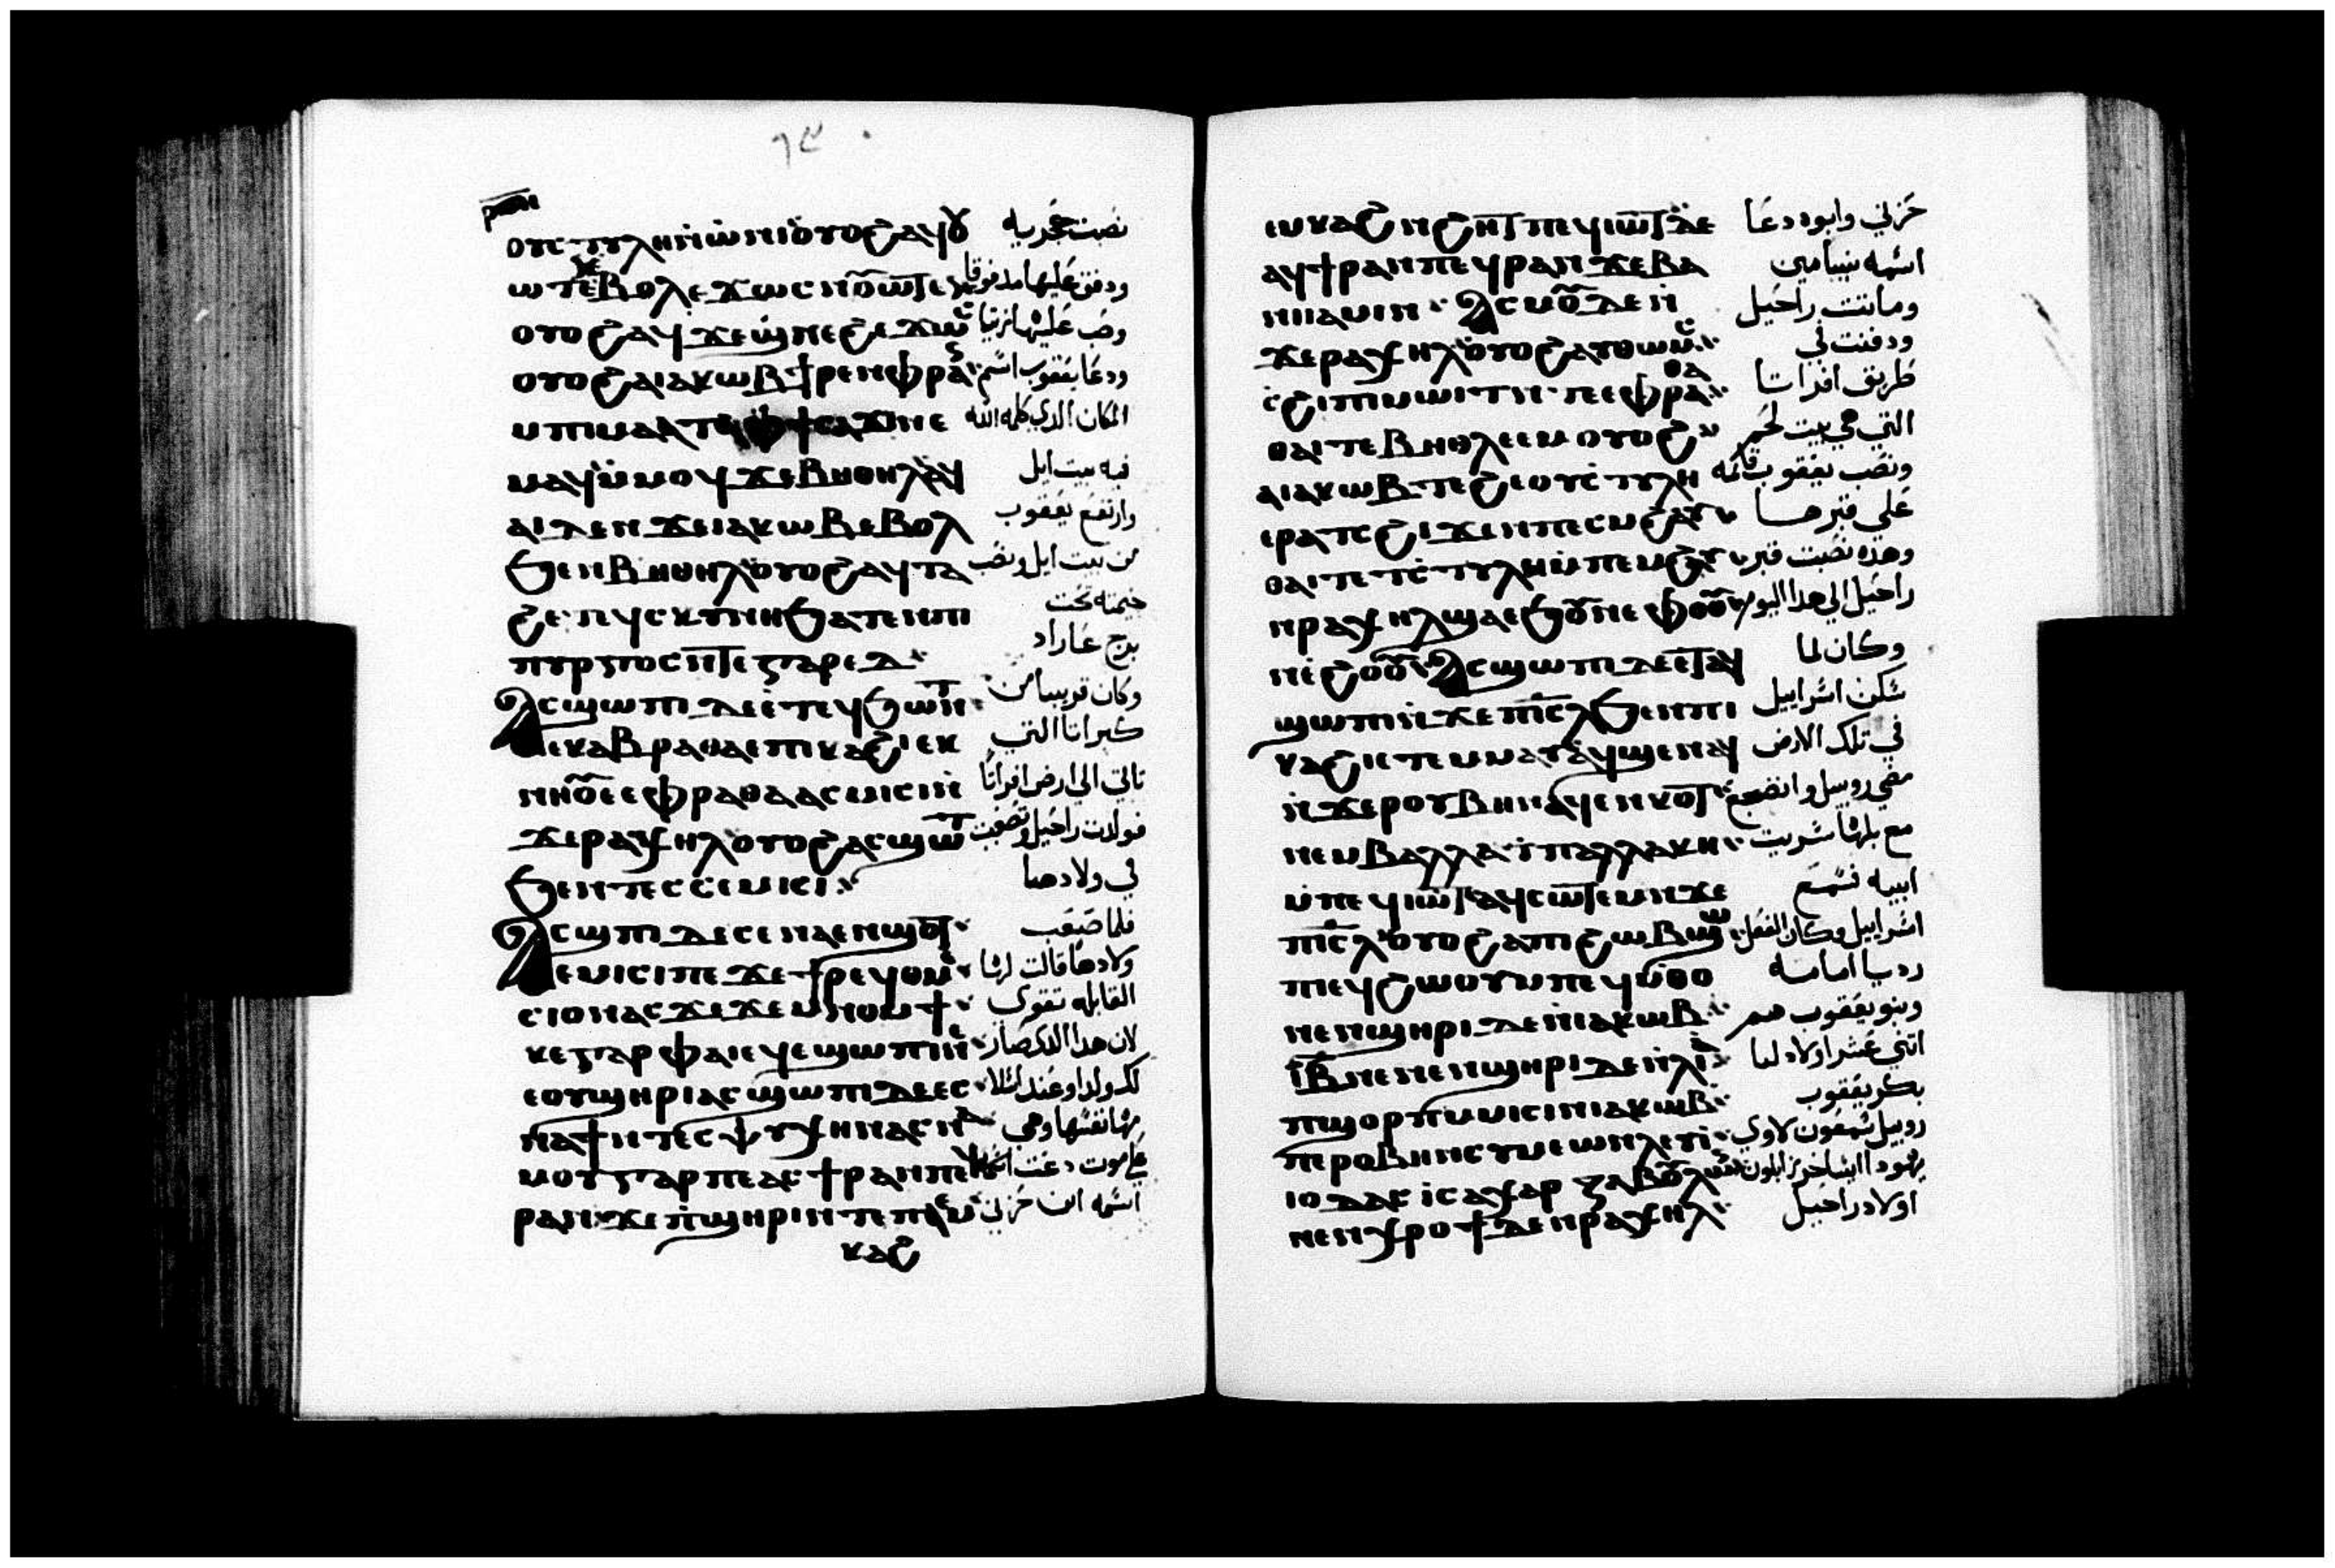 ⲟⲩⲥⲧⲩⲗⲏⲛ̀ⲱⲛⲓⲟⲩⲟϩⲁϥⲟⲩ نصبت حجريه
ⲱⲧⲉⲛⲉⲃⲟⲗⲉϫⲱⲥ ودفق عليها
ⲟⲩⲟϩⲁϥϫⲉϣⲛⲉϩⲉϫⲱⲥ وصب عليها زيتا
ⲟⲩⲟϩⲁⲓⲁⲕⲱⲃϯⲣⲉⲛⲫⲣⲁ ودعا يعقوب اسم
ⲙⲡⲓⲙⲁ المكان الدي كلمه الله
ⲙⲁϥⲙ̀ⲙⲟϥϫⲉⲃⲏⲑⲏⲗⲁϥ فيه بيت ايل
ⲁⲓⲇⲉⲛϫⲉⲓⲁⲕⲱⲃⲉⲃⲟⲗ وارتفع يعقوب
ϧⲉⲛⲃⲏⲑⲏⲗⲟⲩⲟϩⲁϥⲧⲁ من بيت ايل ونصب
ϩⲉⲧⲉϥⲥⲕⲩⲛⲏϧⲁⲧⲉⲛⲡⲓ خيمته تحت
ⲡⲩⲣⲅⲟⲥⲛ̀ⲧⲉⲅⲁⲣⲉⲇ برج عاراد
ⲁⲥϣⲱⲡⲓⲇⲉⲉⲧⲉϥϧⲱⲛⲧ وكان قريبا من
ⲉⲕⲁⲃⲣⲁⲑⲁⲉⲡⲓⲕⲁϩⲓⲉⲕ كبراتا التي
ⲛⲏⲟⲩⲉⲉⲫⲣⲁⲑⲁⲁⲥⲙⲓⲥⲓⲛ̀ تاتي الي ارض افراتا
ϫⲉⲣⲁⲭⲏⲗⲟⲩⲟϩⲁⲥϣⲱⲧ فولدت راحيل وتصعبت
ϧⲉⲛⲡⲉⲥⲥⲉⲙⲓⲥⲓ في ولادها
ⲁⲥϣⲡⲓⲇⲉⲥⲉⲛⲁⲉⲛϣⲟⲧ فلما صعب
ⲉⲙⲓⲥⲓⲡⲉϫⲉϯⲣⲉϥⲑⲙⲉ ولادها قالت لها
ⲥⲓⲟⲛⲁⲥϫⲉϫⲉⲙⲛⲟⲙϯ القابله تقوي
ⲕⲉⲅⲁⲣⲫⲁⲓⲉϥⲉϣⲱⲡⲓⲛⲉ لان هدا الدكر صار
ⲉⲟⲩϣⲏⲣⲓⲁⲥϣⲱⲡⲓⲇⲉⲉⲥ لك ولدا وعند
ⲛⲁϯⲛ̀ⲧⲉⲥⲯⲩⲭⲏⲛⲁⲥⲛⲁ نفسها وهي
ⲙⲟⲩⲅⲁⲣⲡⲉⲁⲥϯⲣⲁⲛⲡⲉϥ موت دعت
ⲣⲁⲛϫⲉⲡ̀ϣⲏⲣⲓⲛⲧⲉⲡⲁⲉⲙ اسمه ابن حزني
ⲕⲁϩ
ⲉⲙⲕⲁϩⲛ̀ϩⲏⲧⲡⲉϥⲓⲱⲧⲇⲉ حزني وابوه دعا
ⲁϥϯⲣⲁⲛⲡⲉϥⲣⲁⲛϫⲉⲃⲉ اسمه بنيامين
ⲛⲓⲁⲙⲓⲛ ⲁⲥⲙⲟⲩⲇⲉⲛ̀ وماتت راحيل
ϫⲉⲣⲁⲭⲏⲗⲟⲩⲟϩⲁⲩⲑⲱⲙⲥ ودفنت في
ϩⲓⲡⲓⲙⲱⲓⲧⲛ̀ⲧⲉⲉⲫⲣⲁⲑⲁ طريق افراتا
ⲑⲁⲓⲧⲉⲃⲏⲑⲗⲉⲉⲙⲟⲩⲟϩ التي هي بيت لحم
ⲁⲓⲁⲕⲱⲃⲧⲉϩⲉⲟⲩⲥⲧⲩⲗⲏ ونصب يعقوب قايمه
ⲉⲣⲁⲧⲥϩⲓϫⲉⲛⲡⲉⲥⲙϩⲁⲩ علي قبرها
ⲑⲁⲓⲧⲉⲧⲥⲧⲩⲗⲏⲙ̀ⲡⲉⲙϩⲁⲩ وهده نصبت قبر
ⲛ̀ⲣⲁⲭⲏⲗϣⲁⲉϧⲟⲩⲛⲉⲫⲟⲟⲩ راحيل الي هدا اليوم
ⲛⲉϩⲟⲟⲩ ⲁⲥϣⲱⲡⲓⲇⲉⲉⲧⲁϥ وكان لما
ϣⲱⲡⲓⲛ̀ϫⲉⲡⲓⲥⲗϧⲉⲛⲡⲓ سكن اسراييل
ⲕⲁϩⲓⲉⲧⲉⲙⲙⲁⲩⲁϥϣⲉⲛⲁϥ في تلك الارض
ⲛ̀ϫⲉⲣⲟⲩⲃⲏⲛⲁϥⲉⲛⲕⲟⲧ مضي روبيل وانضجع
ⲛⲉⲙⲃⲁⲗⲗⲁϯⲡⲁⲗⲗⲁⲕⲏ مع بلها سريت
ⲙ̀ⲡⲉϥⲓⲱⲧⲁϥⲥⲱⲧⲉⲙⲛϫⲉ ابيه فسمع
ⲡⲓⲥⲗⲟⲩⲟϩⲁⲡⲓϩⲱⲃϣⲱ اسراييل وكان الفعل
ⲡⲓⲉϥϩⲱⲟⲩⲙⲡⲉϥⲙ̀ⲑⲟ رديا امامه
ⲛⲉⲛϣⲏⲣⲓⲇⲉⲛⲓⲁⲕⲱⲃ وبنو يعقوب هم
ⲓⲃⲛⲉⲛⲉⲛϣⲏⲣⲓⲇⲉⲛ̀ⲗⲓⲁ اتني عشر اولاد ليا
ⲡϣⲟⲣⲡⲙⲙⲓⲥⲓⲛⲓⲁⲕⲱⲃ بكر يعقوب
ⲡⲉⲣⲟⲃⲏⲛⲥⲩⲙⲉⲱⲛⲗⲉⲩⲓ روبيل شمعون لاوي
ⲓⲟⲇⲁⲥ ⲓⲥⲁⲭⲁⲣ ⲍⲁⲃⲟⲩⲗⲱⲛ يهودا ايساخر زابلون
ⲛⲉⲛⲭⲣⲟϯⲇⲉⲛⲣⲁⲭⲏⲗ اولاد راحيل